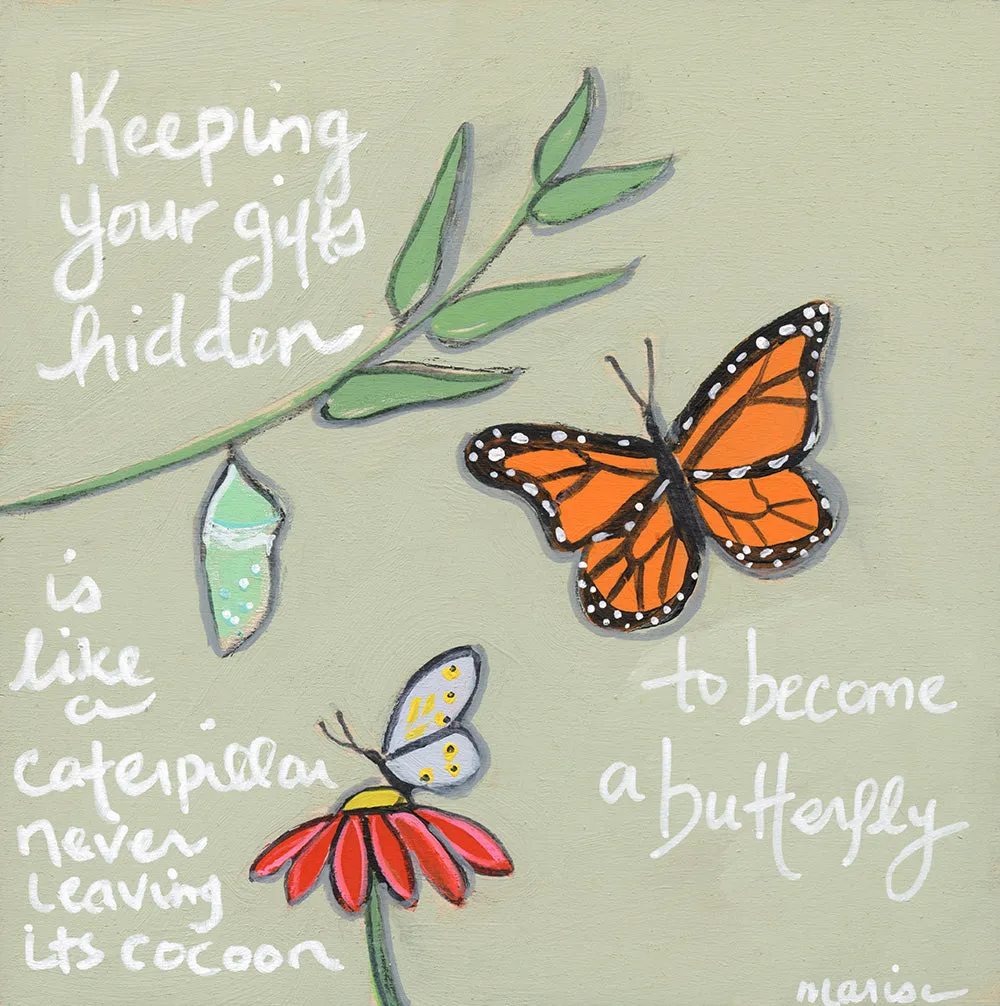 Keeping
your gifts
hidden
is
like
a
caterpillar
never
leaving
its cocoon
to become
a butterfly